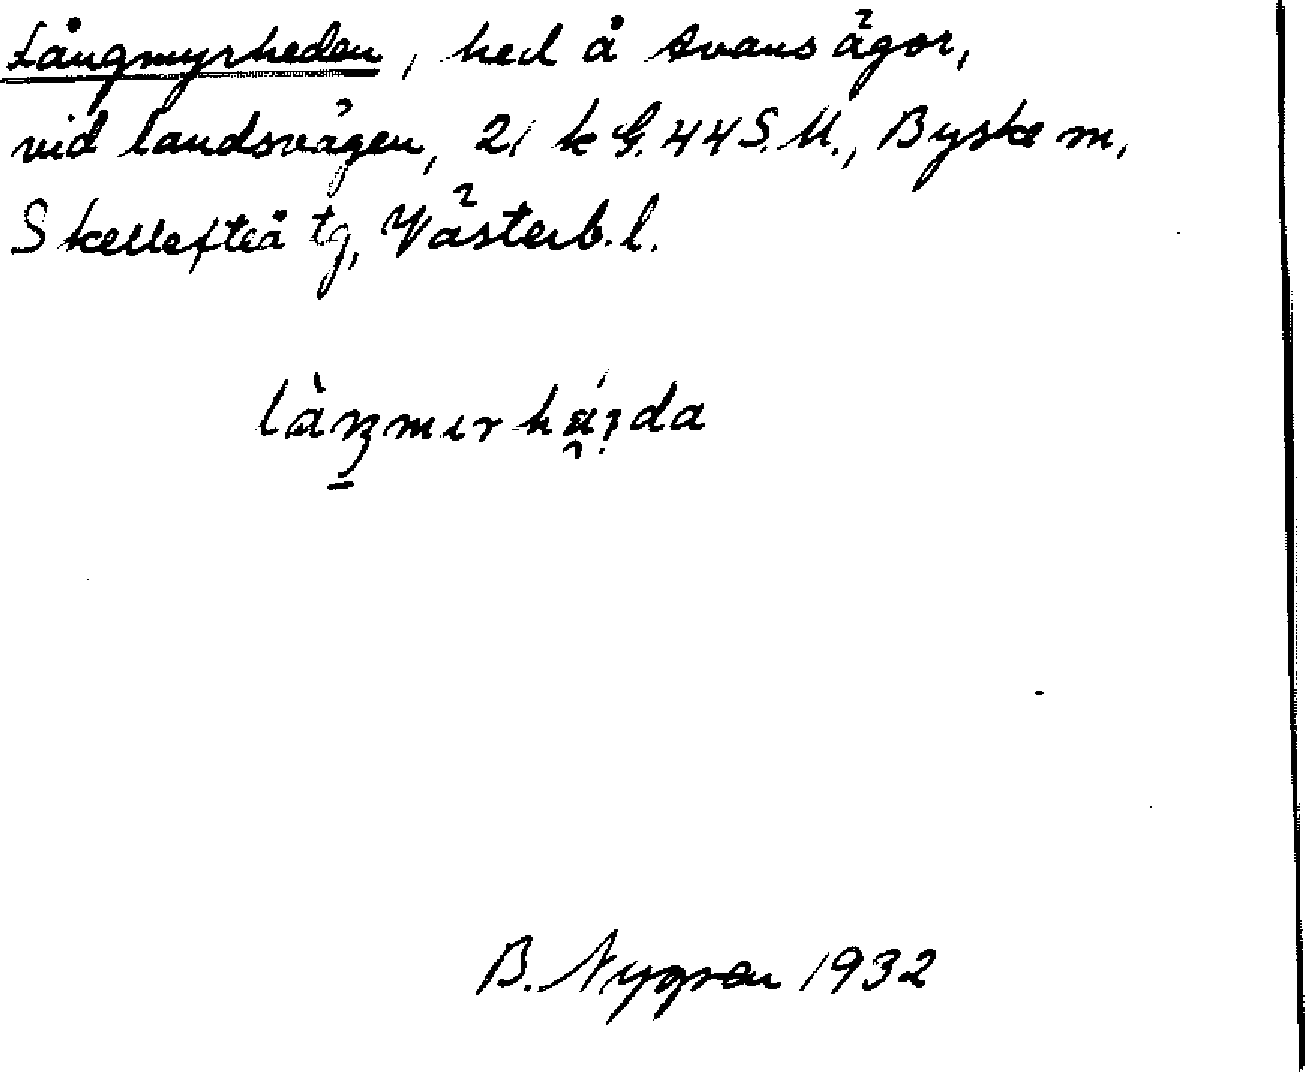 Långmyrheden, hed å Avans ägor,
vid landsvägen, 21 k G. 44 S. M., Byske m,
Skellefteå tg, Västerb. l.
B. Nygren 1932